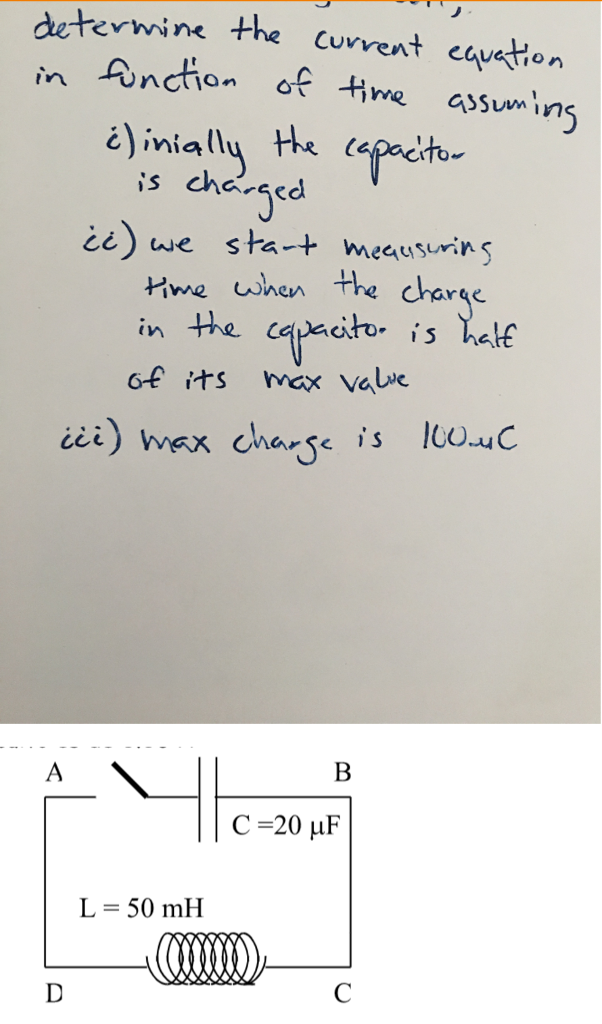 determine the current equation
in function of time assuming
i) inially the capacitor
is charged
ii) we start meausuring
time when the charge
in the capacitor is half
of its max value
iii) max charge is 100 uC
A
B
C =20 μF
L = 50 mH
D
C